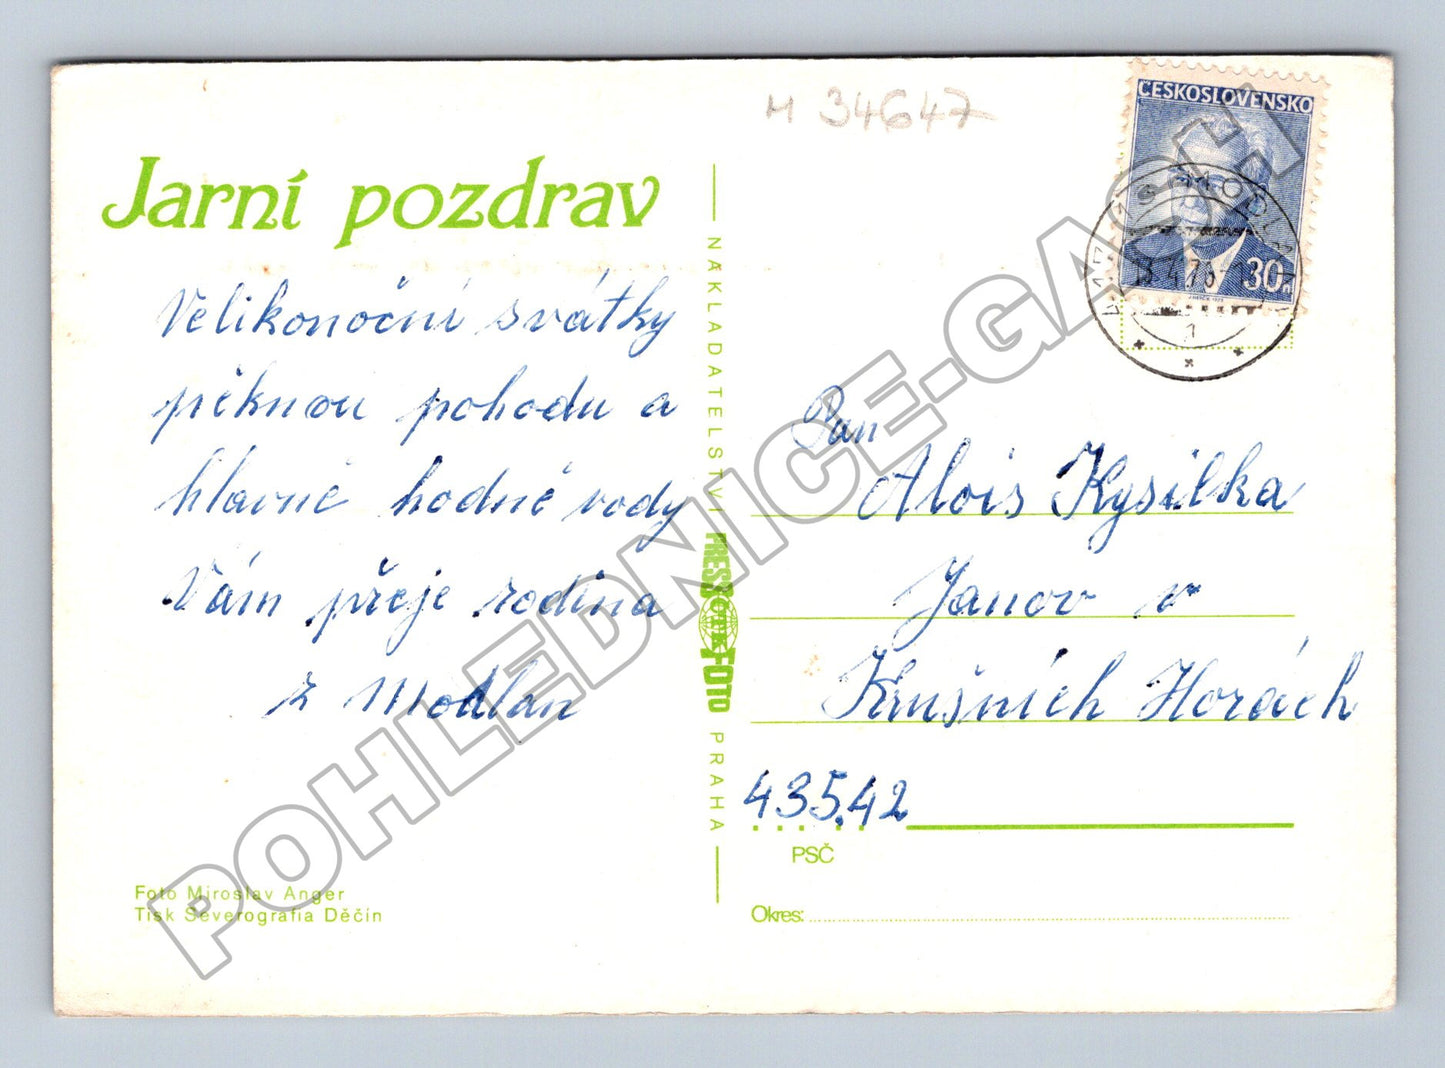 M 34647
ČESKOSLOVENSKO
30h
13.4.76-13
1
Jarní pozdrav
Velikonoční svátky
pěknou pohodu a
hlavně hodně vody
Vám přeje rodina
z Modlan
Foto Miroslav Anger
Tisk Severografia Děčín
NAKLADATELSTVÍ PRESSFOTO PRAHA
Pan
Alois Kysilka
Janov v
Krušních Horách
435.42
PSČ
Okres:
POHLEDNICE-GASCH